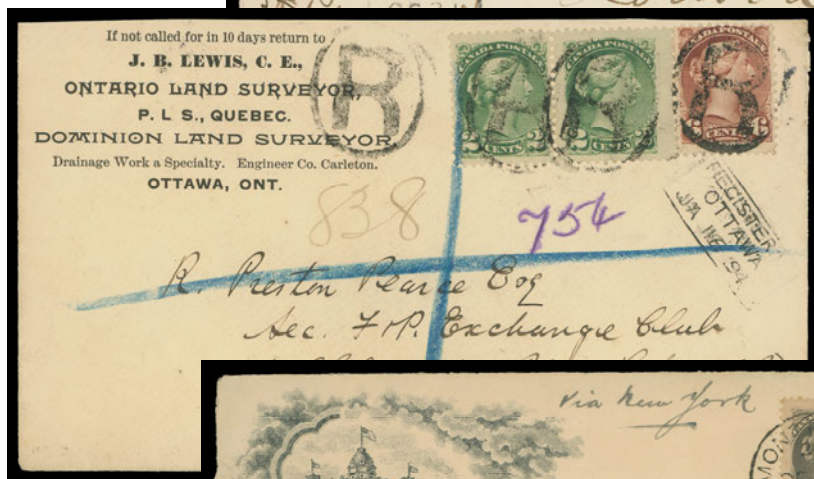 If not called for in 10 days return to
J. B. LEWIS, C. E.,
ONTARIO LAND SURVEYOR,
P. L S., QUEBEC.
DOMINION LAND SURVEYOR
Drainage Work a Specialty. Engineer Co. Carleton.
OTTAWA, ONT.
R
CANADA POSTAGE
2 CENTS 2
CANADA POSTAGE
2 CENTS 2
CANADA POSTAGE
CENTS 6
838
754
REGISTERED
OTTAWA
JA 16 94
R. Preston Pearce Esq
Sec. F.P. Exchange Club
via New York
MON